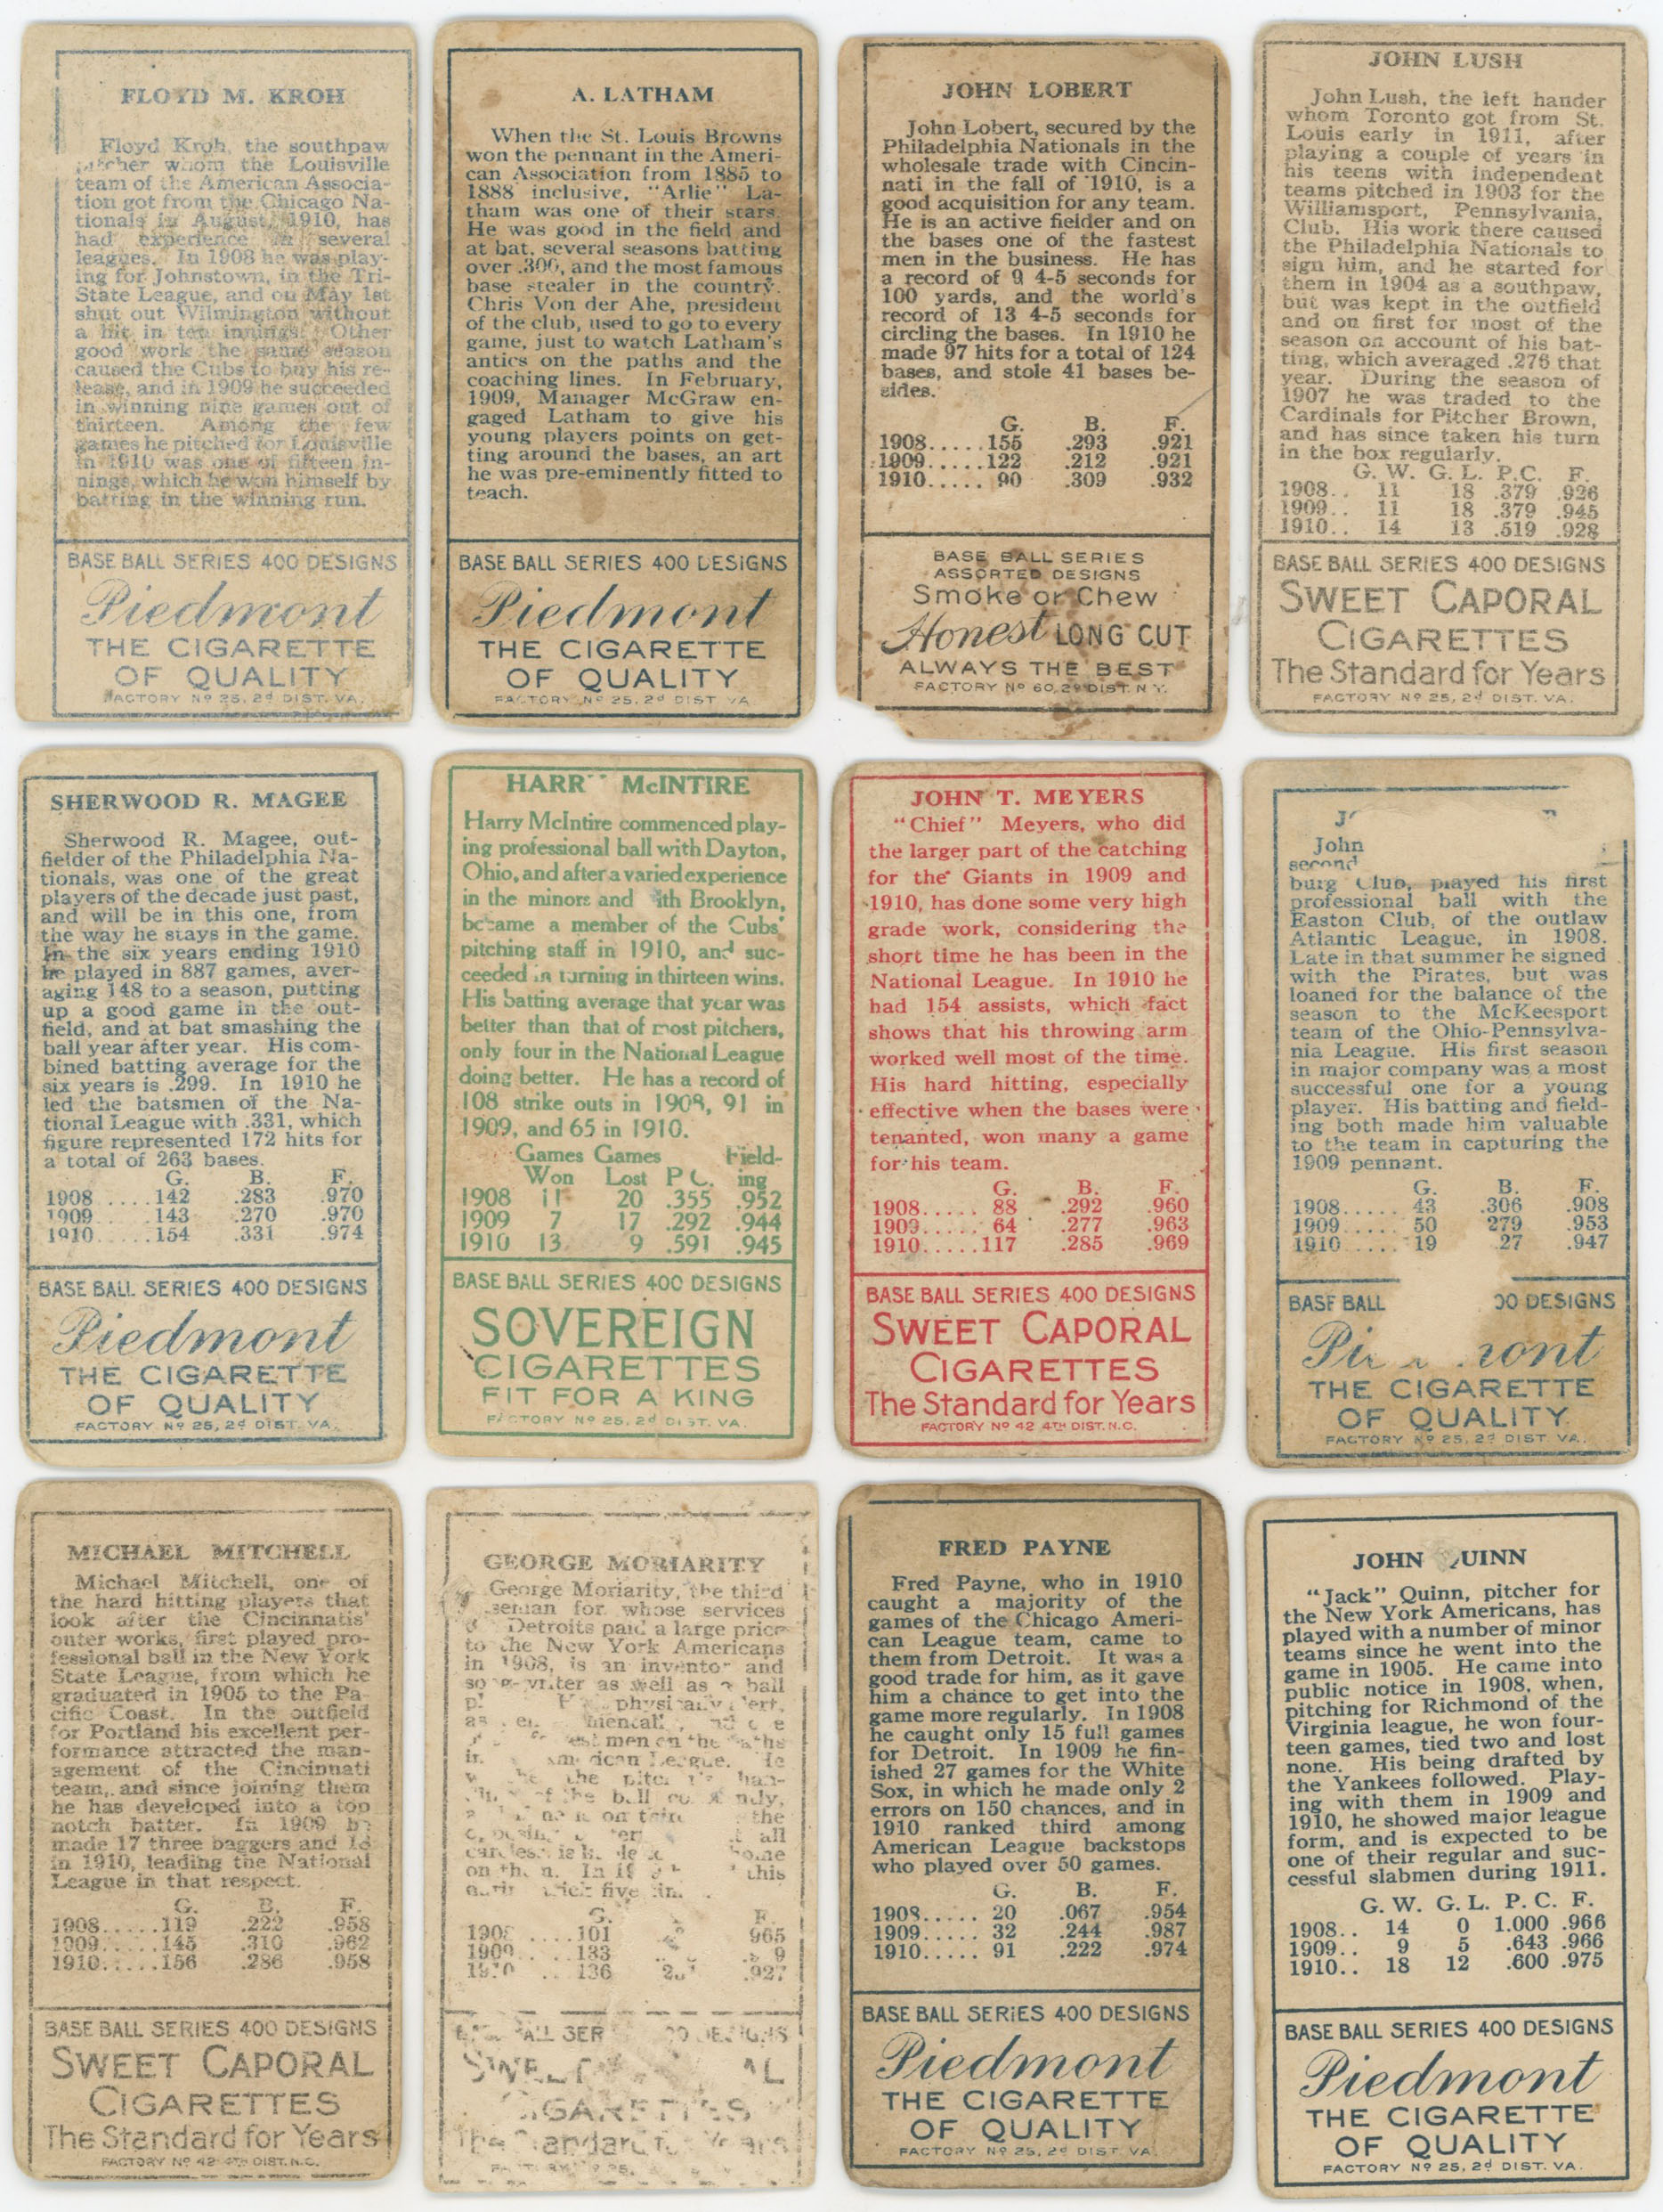 FLOYD M. KROH
Floyd Kroh, the southpaw
whom the Louisville
team of the American Associa-
tion got from the Chicago Na-
tionals in August, 1910, has
had experience in several
leagues. In 1908 he was play-
ing for Johnstown, in the Tri-
State League, and on May 1st
shut out Wilmington without
a hit in ten innings. Other
good work the same season
caused the Cubs to buy his re-
lease, and in 1909 he succeeded
in winning nine games out of
thirteen. Among the few
games he pitched for Louisville
in 1910 was one of fifteen in-
nings, which he won himself by
batting in the winning run.
BASE BALL SERIES 400 DESIGNS
Piedmont
THE CIGARETTE
OF QUALITY
FACTORY Nº 25, 2d DIST. VA.
A. LATHAM
When the St. Louis Browns
won the pennant in the Ameri-
can Association from 1885 to
1888 inclusive, "Arlie" La-
tham was one of their stars.
He was good in the field and
at bat, several seasons batting
over .300, and the most famous
base stealer in the country.
Chris Von der Ahe, president
of the club, used to go to every
game, just to watch Latham's
antics on the paths and the
coaching lines. In February,
1909, Manager McGraw en-
gaged Latham to give his
young players points on get-
ting around the bases, an art
he was pre-eminently fitted to
teach.
BASE BALL SERIES 400 DESIGNS
Piedmont
THE CIGARETTE
OF QUALITY
FACTORY Nº 25, 2d DIST VA
JOHN LOBERT
John Lobert, secured by the
Philadelphia Nationals in the
wholesale trade with Cincin-
nati in the fall of 1910, is a
good acquisition for any team.
He is an active fielder and on
the bases one of the fastest
men in the business. He has
a record of 9 4-5 seconds for
100 yards, and the world's
record of 13 4-5 seconds for
circling the bases. In 1910 he
made 97 hits for a total of 124
bases, and stole 41 bases be-
sides.
G. B. F.
1908.....155 .293 .921
1909.....122 .212 .921
1910..... 90 .309 .932
BASE BALL SERIES
ASSORTED DESIGNS
Smoke or Chew
Honest LONG CUT
ALWAYS THE BEST
FACTORY Nº 60, 2d DIST. N.Y.
JOHN LUSH
John Lush, the left hander
whom Toronto got from St.
Louis early in 1911, after
playing a couple of years in
his teens with independent
teams pitched in 1903 for the
Williamsport, Pennsylvania,
Club. His work there caused
the Philadelphia Nationals to
sign him, and he started for
them in 1904 as a southpaw,
but was kept in the outfield
and on first for most of the
season on account of his bat-
ting, which averaged .276 that
year. During the season of
1907 he was traded to the
Cardinals for Pitcher Brown,
and has since taken his turn
in the box regularly.
G. W. G. L. P.C. F.
1908.. 11 18 .379 .926
1909.. 11 18 .379 .945
1910.. 14 13 .519 .928
BASE BALL SERIES 400 DESIGNS
SWEET CAPORAL
CIGARETTES
The Standard for Years
FACTORY Nº 25, 2d DIST. VA.
SHERWOOD R. MAGEE
Sherwood R. Magee, out-
fielder of the Philadelphia Na-
tionals, was one of the great
players of the decade just past,
and will be in this one, from
the way he stays in the game.
In the six years ending 1910
he played in 887 games, aver-
aging 148 to a season, putting
up a good game in the out-
field, and at bat smashing the
ball year after year. His com-
bined batting average for the
six years is .299. In 1910 he
led the batsmen of the Na-
tional League with .331, which
figure represented 172 hits for
a total of 263 bases.
G. B. F.
1908 ....142 .283 .970
1909.....143 .270 .970
1910.....154 .331 .974
BASE BALL SERIES 400 DESIGNS
Piedmont
THE CIGARETTE
OF QUALITY
FACTORY Nº 25, 2d DIST. VA.
HARRY McINTIRE
Harry McIntire commenced play-
ing professional ball with Dayton,
Ohio, and after a varied experience
in the minors and with Brooklyn,
became a member of the Cubs'
pitching staff in 1910, and suc-
ceeded in turning in thirteen wins.
His batting average that year was
better than that of most pitchers,
only four in the National League
doing better. He has a record of
108 strike outs in 1908, 91 in
1909, and 65 in 1910.
Games Games Field-
Won Lost P C. ing
1908 11 20 .355 .952
1909 7 17 .292 .944
1910 13 9 .591 .945
BASE BALL SERIES 400 DESIGNS
SOVEREIGN
CIGARETTES
FIT FOR A KING
FACTORY Nº 25, 2d DIST. VA.
JOHN T. MEYERS
"Chief" Meyers, who did
the larger part of the catching
for the Giants in 1909 and
1910, has done some very high
grade work, considering the
short time he has been in the
National League. In 1910 he
had 154 assists, which fact
shows that his throwing arm
worked well most of the time.
His hard hitting, especially
effective when the bases were
tenanted, won many a game
for his team.
G. B. F.
1908..... 88 .292 .960
1909..... 64 .277 .963
1910.....117 .285 .969
BASE BALL SERIES 400 DESIGNS
SWEET CAPORAL
CIGARETTES
The Standard for Years
FACTORY Nº 42 4TH DIST. N.C.
John
second
burg Club, played his first
professional ball with the
Easton Club, of the outlaw
Atlantic League, in 1908.
Late in that summer he signed
with the Pirates, but was
loaned for the balance of the
season to the McKeesport
team of the Ohio-Pennsylva-
nia League. His first season
in major company was a most
successful one for a young
player. His batting and field-
ing both made him valuable
to the team in capturing the
1909 pennant.
G. B. F.
1908..... 43 .306 .908
1909..... 50 279 .953
1910..... 19 .947
BASE BALL DESIGNS
Piedmont
THE CIGARETTE
OF QUALITY
FACTORY Nº 25, 2d DIST. VA.
MICHAEL MITCHELL
Michael Mitchell, one of
the hard hitting players that
look after the Cincinnatis'
outer works, first played pro-
fessional ball in the New York
State League, from which he
graduated in 1905 to the Pa-
cific Coast. In the outfield
for Portland his excellent per-
formance attracted the man-
agement of the Cincinnati
team, and since joining them
he has developed into a top
notch batter. In 1909 he
made 17 three baggers and 18
in 1910, leading the National
League in that respect.
G. B. F.
1908.....119 .222 .958
1909.....145 .310 .962
1910.....156 .286 .958
BASE BALL SERIES 400 DESIGNS
SWEET CAPORAL
CIGARETTES
The Standard for Years
FACTORY Nº 42 4TH DIST. N.C.
GEORGE MORIARITY
George Moriarity, the third
for whose services
Detroits paid a large price
to the New York Americans
in 1908, is an inventor and
song-writer as well as a ball
physically
men on the paths
in American League. He
the han-
of the ball
is on the
all
careless is home
on them. In this
trick five
G. F.
1908 ....101 965
1909 ....133
1910 .. 136 .927
SWEET CAPORAL
CIGARETTES
The Standard for Years
FRED PAYNE
Fred Payne, who in 1910
caught a majority of the
games of the Chicago Ameri-
can League team, came to
them from Detroit. It was a
good trade for him, as it gave
him a chance to get into the
game more regularly. In 1908
he caught only 15 full games
for Detroit. In 1909 he fin-
ished 27 games for the White
Sox, in which he made only 2
errors on 150 chances, and in
1910 ranked third among
American League backstops
who played over 50 games.
G. B. F.
1908..... 20 .067 .954
1909..... 32 .244 .987
1910..... 91 .222 .974
BASE BALL SERIES 400 DESIGNS
Piedmont
THE CIGARETTE
OF QUALITY
FACTORY Nº 25, 2d DIST. VA.
JOHN QUINN
"Jack" Quinn, pitcher for
the New York Americans, has
played with a number of minor
teams since he went into the
game in 1905. He came into
public notice in 1908, when,
pitching for Richmond of the
Virginia league, he won four-
teen games, tied two and lost
none. His being drafted by
the Yankees followed. Play-
ing with them in 1909 and
1910, he showed major league
form, and is expected to be
one of their regular and suc-
cessful slabmen during 1911.
G. W. G. L. P. C. F.
1908.. 14 0 1.000 .966
1909.. 9 5 .643 .966
1910.. 18 12 .600 .975
BASE BALL SERIES 400 DESIGNS
Piedmont
THE CIGARETTE
OF QUALITY
FACTORY Nº 25, 2d DIST. VA.